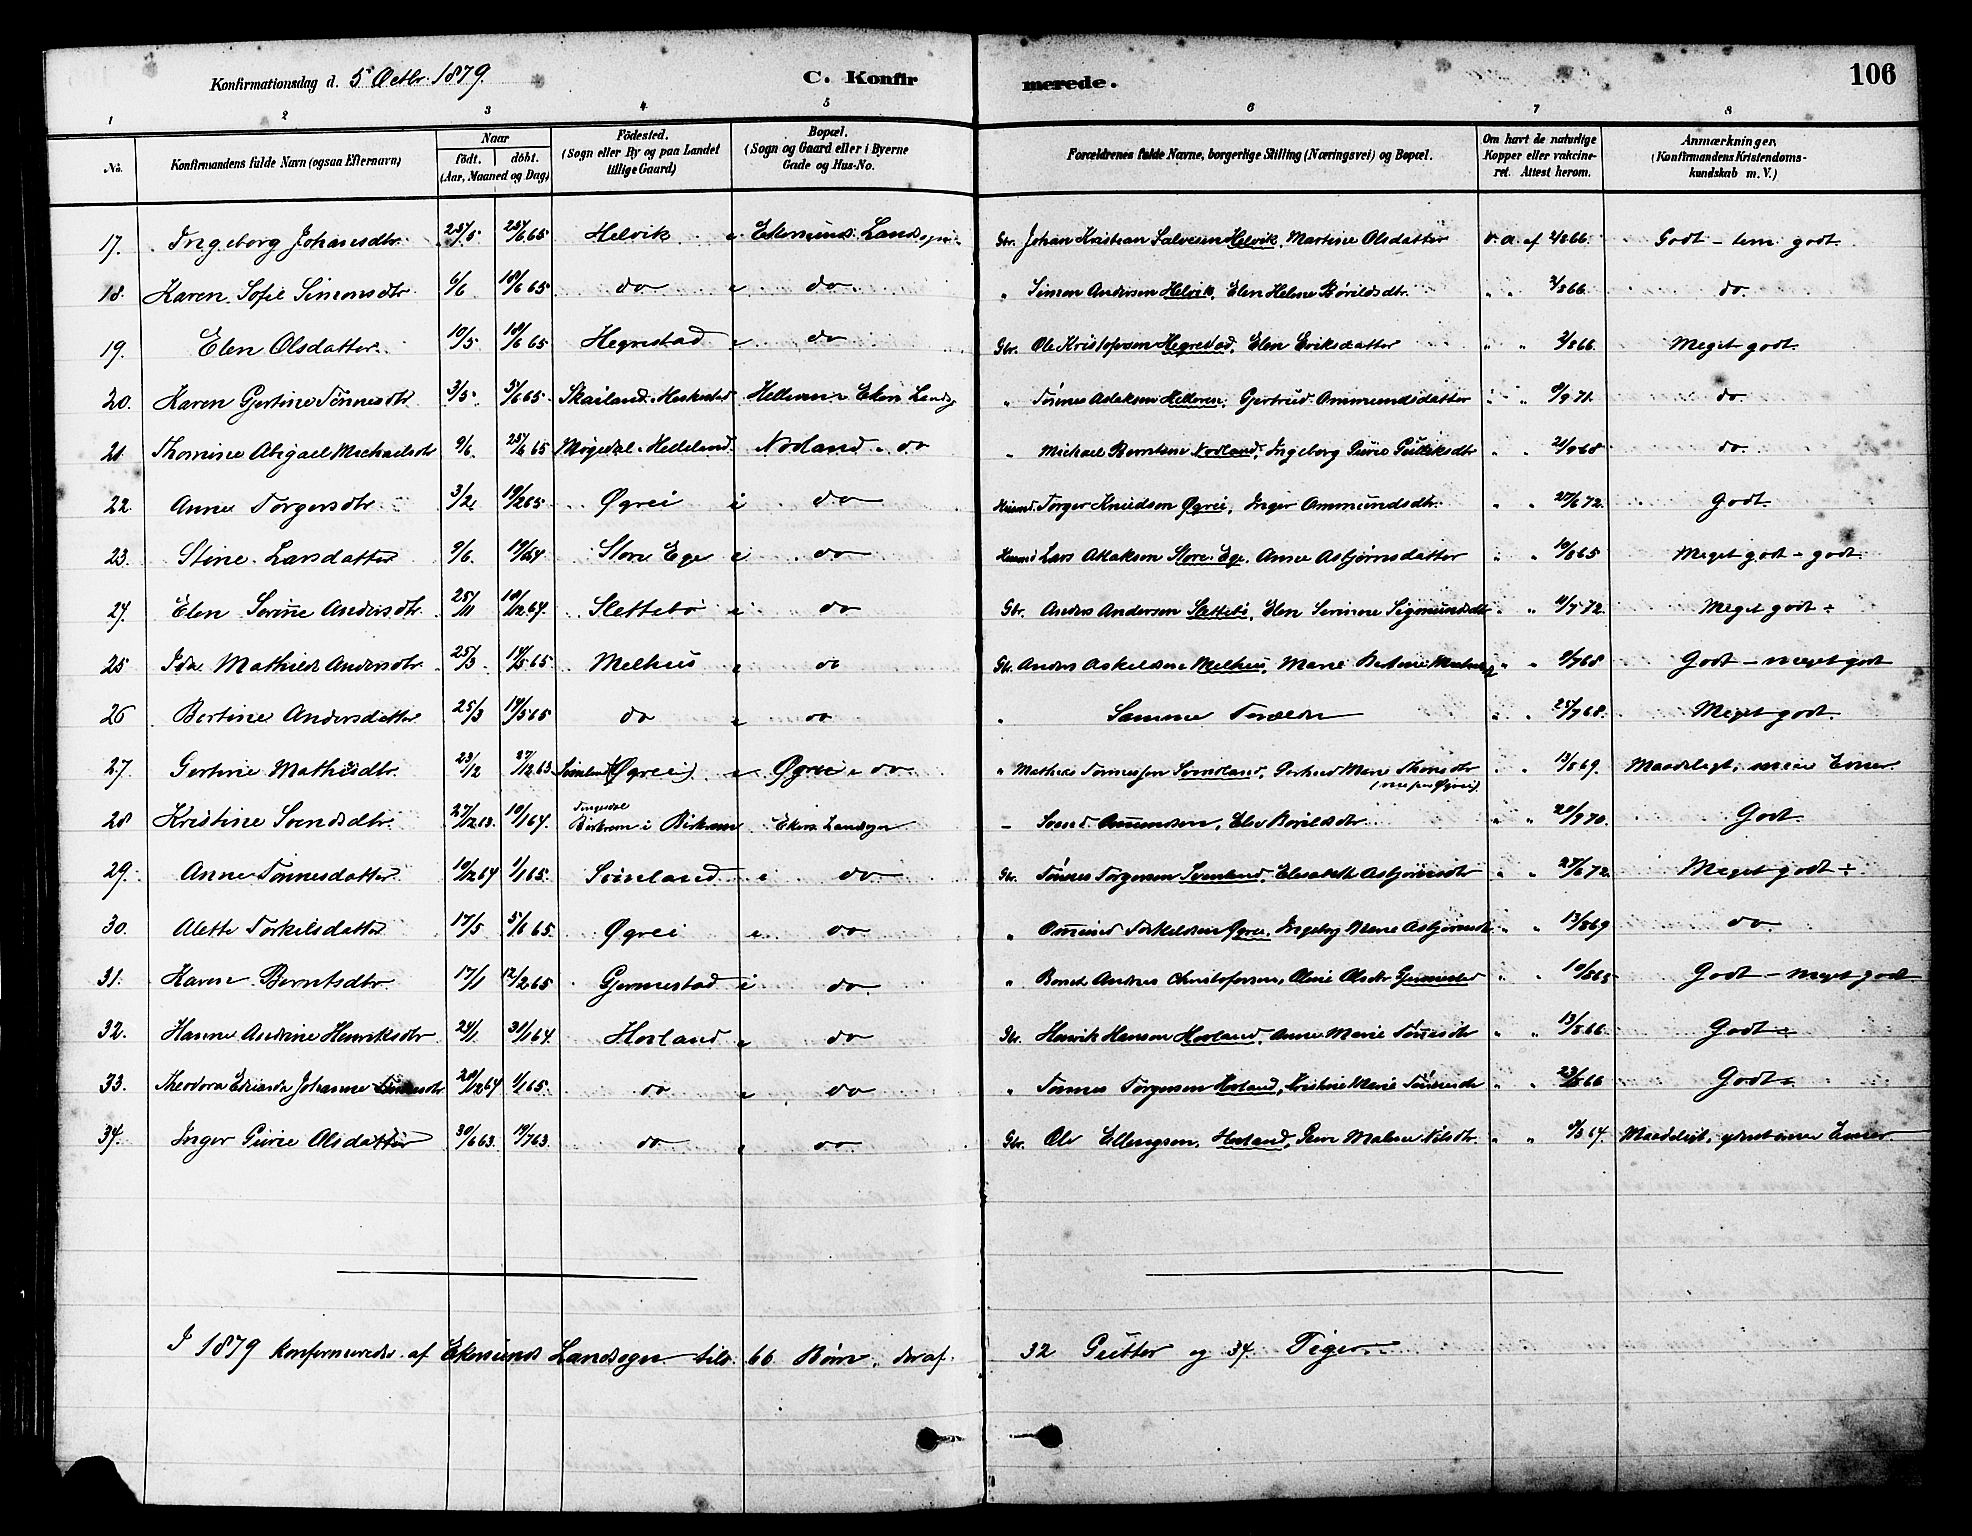 Konfirmationsdag d. 5 Octbr. 1879.
C. Konfir merede.
106
1 2 3 4 5 6 7 8
No.
Konfirmandens fulde Navn (ogsaa Efternavn)
Naar
födt. döbt.
(Aar, Maaned og Dag)
Födested.
(Sogn eller By og paa Landet tillige Gaard)
Bopæl.
(Sogn og Gaard eller i Byerne Gade og Hus-No.
Forældrenes fulde Navne, borgerlige Stilling (Næringsvei) og Bopæl.
Om havt de naturlige Kopper eller vakcineret. Attest herom.
Anmærkninger.
(Konfirmandens Kristendomskundskab m. V.)
17. Ingeborg Johansdtr. 25/5 25/6 65 Helvik Ekersunds Landsogn Gbr. Johan Kristian Salvesen Helvik, Martine Olsdatter v. a. af 2/8 66. Godt - tem. godt.
18. Karen Sofie Simonsdtr 6/6 18/6 65 do " do " Simon Andersen Helvik, Elen Helene Bórildsdtr. " " 2/8 66. do.
19. Elen Olsdatter 10/5 18/6 65 Hegrestad " do Gbr. Ole Kristofersen Hegrestad, Elen Eriksdatter " " 2/8 66. Meget godt.
20. Karen Gjertine Tönnesdtr 3/5 5/6 65 Skailand Heskestad Helleren Ekers. Landsg " Tönnes Aslaksen Helleren, Gjertrud Ammundsdatter " " 8/9 71. do.
21. Thomine Abigael Michaelsdtr 9/6 25/6 65 Møgedal Helleland Nodland do " Michael Berntsen Nodland, Ingeborg Gurie " " 21/9 68 do
22. Anne Torgersdtr 3/2 19/2 65 Øgrei i do Torger Knudsen Øgrei, Inger Ammundsdtr. " " 27/6 72. Godt.
23. Stine Larsdatter 9/6 19/6 64 Store Ege i do Lars Atlaksen Store Ege, Anne Asbjørnsdatter " " 10/8 65 Meget godt - godt.
24. Elen Serine Andersdtr. 25/11 10/12 64 Slettebö i do Gbr. Anders Andersen Slettebö, Elen Serine Sigmundsdtr " " 11/7 72. Meget godt ÷
25 Ida Mathilde Andersdtr. 25/3 14/5 65 Melhus " do Gbr. Anders Askeldsen Melhus, Marie Bertine " 9/9 68 Godt - meget godt
26 Bertine Andersdatter 25/3 14/5 65 do " do " Samme Forældre " " 25/9 68. Meget godt.
27. Gertine Mathisdtr. 23/12 27/12 63 (Øgrei) " Øgrei " do " Mathias Tønnessen Svindland, Gertrud Marie Thorsdtr (nu paa Øgrei). " " 13/8 69. Maadeligt, smaa Evner.
28 Kristine Svendsdtr. 27/12 63. 10/1 64. Birkrem i Birkrem Ekers. Landsogn - Svend Amundsen, Elev Bórildsdtr. " " 20/9 70. Godt.
29. Anne Tønnesdatter 10/12 64 1/1 65. Svinland i do Gbr. Tönnes Torgersen Svinland, Elisabeth Asbjørnsdtr " " 27/6 72. Meget godt ÷
30. Alette Torkelsdatter 17/5 5/6 65. Øgrei " do " Torkelsen Øgrei, Ingeborg Marie Asbjørnsdtr " " 13/8 69 do.
31. Karen Berntsdtr. 17/1 12/2 65 Gjermestad i do. " Bernt Andreas Christofersen, Olene Olsdtr Gjermestad " " 10/8 65 Godt - meget godt
32. Hanne Andrine Henriksdtr 24/1. 31/1 64. Hovland " do Gbr. Henrik Hansen Hovland, Anne Marie Tönnesdtr " " 13/8 66. Godt ÷
33. Theodora Johanne 20/12 64 1/1 65. do " do " Tønnes Torgersen Hovland, Kristine Marie Tönnesdtr " " 23/8 66 Godt ÷
34. Inger Gurie Olsdatter 30/6 63. 19/7 63. do " do Gbr. Ole Ellingsen Hovland, Gurie Malene Nilsdtr. " " 9/8 64. Maadeligt, Evner.
I 1879 konfirmeredes af Ekersunds Landsogn tils. 66 Börn, deraf 32 Gutter og 34 Piger.